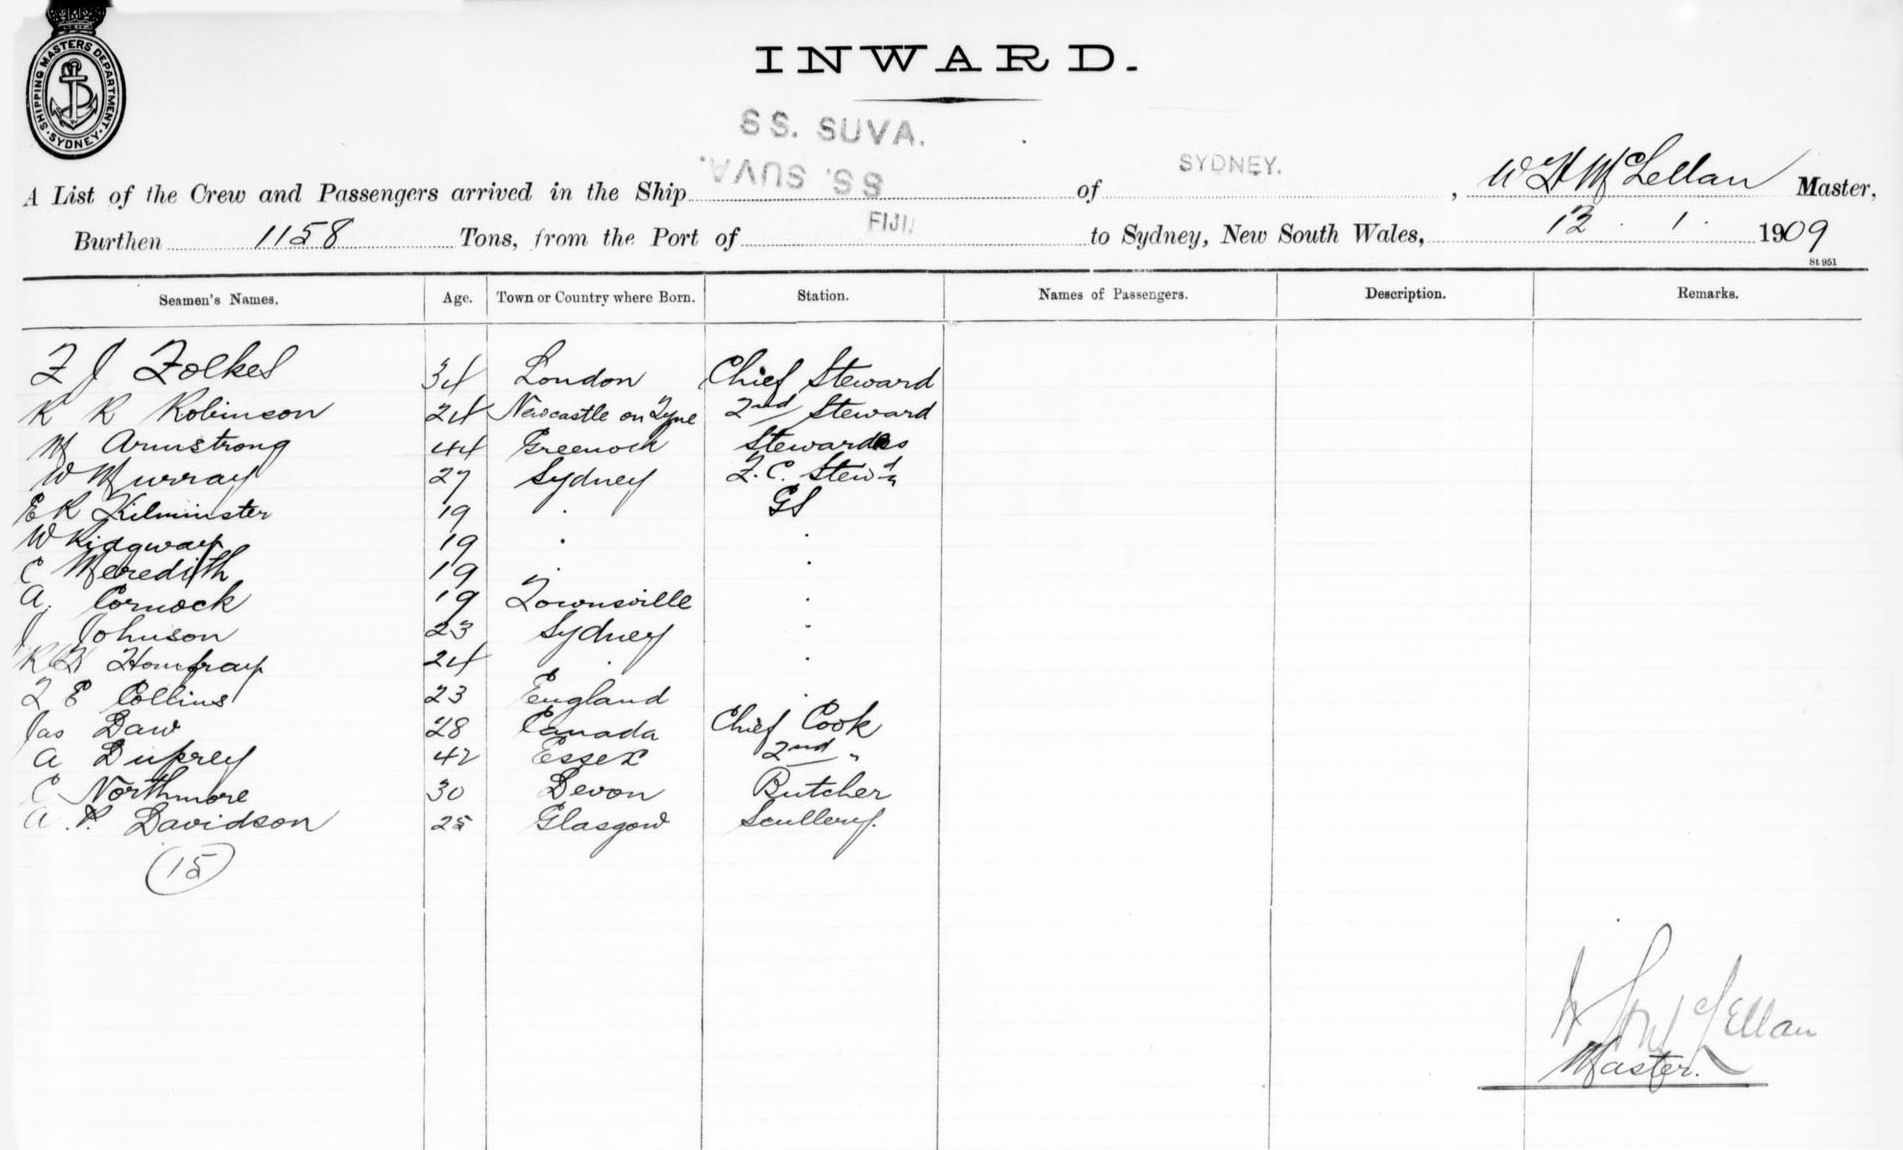 SHIPPING MASTERS DEPARTMENT · SYDNEY ·
INWARD.
SS. SUVA.
SS. SUVA.
SYDNEY.
A List of the Crew and Passengers arrived in the Ship of , W H McLellan Master,
FIJI.
Burthen 1158 Tons, from the Port of to Sydney, New South Wales, 12 . 1 . 1909
St 951
Seamen's Names. Age. Town or Country where Born. Station. Names of Passengers. Description. Remarks.
F J Folkes 34 London Chief Steward
R R Robinson 24 Newcastle on Tyne 2nd Steward
M Armstrong 44 Greenock Stewardess
W Murray 27 Sydney F.C. Stewd
E R Kilminster 19 . GS
W Ridgway 19 . .
C Meredith 19 . .
A. Cornock 19 Townsville .
J Johnson 23 Sydney .
R Homfray 24 . .
F E Collins 23 England .
Jas Daw 28 Canada Chief Cook
A Duprey 42 Essex 2nd "
C Northmore 30 Devon Butcher
A. P. Davidson 25 Glasgow Scullery.
(15)
W H McLellan
Master.